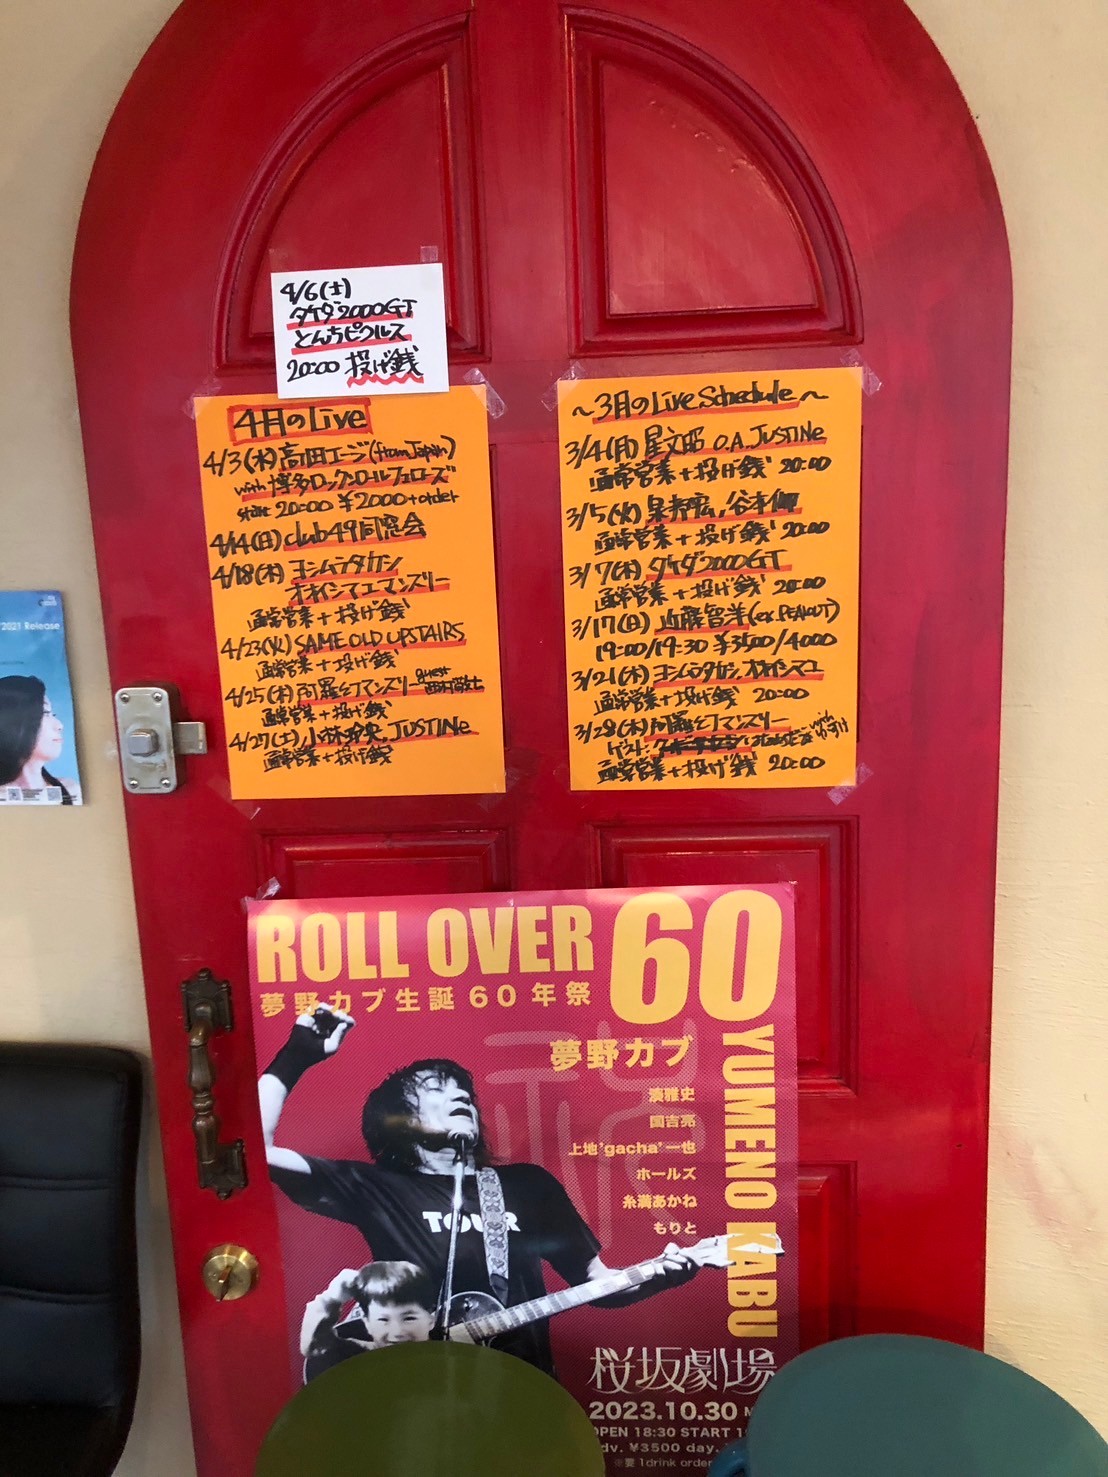 4/6(土)
タケダ2000GT
とんちピクルス
20:00 投げ銭
4月のLive
4/3(水)高田エージ(from Japan)
with 博多ロックンロールフェローズ
start 20:00 ¥2000+order
4/14(日)club49同窓会
4/18(木)ヨシムラタカシ
オオイシマユマンズリー
通常営業+投げ銭
4/23(火)SAME OLD UPSTAIRS
通常営業+投げ銭
4/25(木)阿羅幻マンスリー guest
通常営業+投げ銭
4/27(土)小林玲央.JUSTINe
通常営業+投げ銭
~3月のLive Schedule~
3/4(月)星文昭 O.A.JUSTINe
通常営業+投げ銭 20:00
3/5(火)
通常営業+投げ銭 20:00
3/7(木)タケダ2000GT
通常営業+投げ銭 20:00
3/17(日)近藤智洋(ex.PEALOUT)
19:00/19:30 ¥3500/4000
3/21(木)ヨシムラタカシ.オオイシマユ
通常営業+投げ銭 20:00
3/28(木)阿羅幻マンスリー
ゲスト:
通常営業+投げ銭 20:00
2021 Release
ROLL OVER 60
夢野カブ生誕60年祭
YUMENO KABU
夢野カブ
湊雅史
国吉亮
上地'gacha'一也
ホールズ
糸満あかね
もりと
TOUR
桜坂劇場
2023.10.30
OPEN 18:30 START
adv. ¥3500 day.
※要1drink order